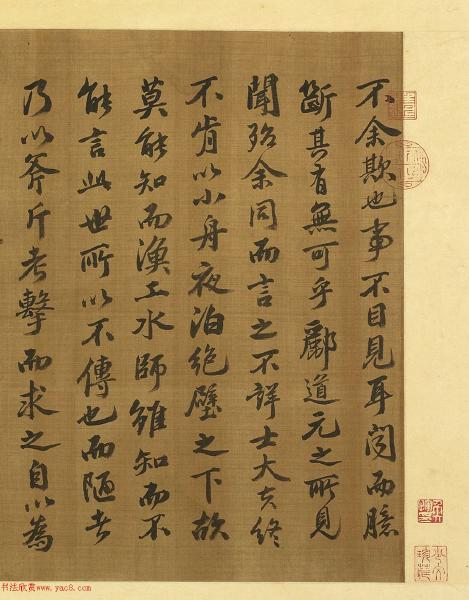 不余欺也事不目見耳聞而臆
斷其有無可乎酈道元之所見
聞殆余同而言之不詳士大夫終
不肯以小舟夜泊絶壁之下故
莫能知而漁工水師雖知而不
能言此世所以不傳也而陋者
乃以斧斤考擊而求之自以為
书法欣赏www.yac8.com